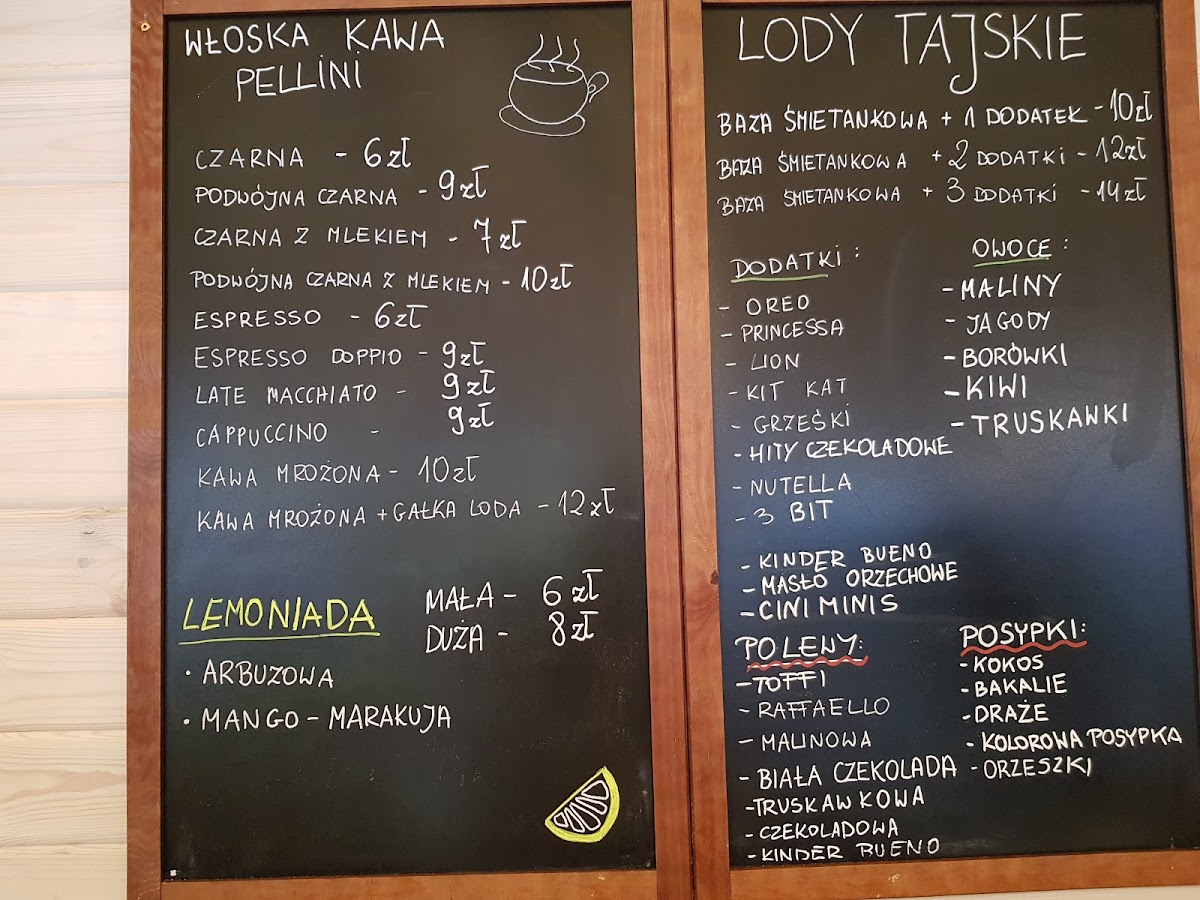 WŁOSKA KAWA
PELLINI
CZARNA - 6 zł
PODWÓJNA CZARNA - 9 zł
CZARNA Z MLEKIEM - 7 zł
PODWÓJNA CZARNA Z MLEKIEM - 10 zł
ESPRESSO - 6 zł
ESPRESSO DOPPIO - 9 zł
LATE MACCHIATO - 9 zł
CAPPUCCINO - 9 zł
KAWA MROŻONA - 10 zł
KAWA MROŻONA + GAŁKA LODA - 12 zł
LEMONIADA
MAŁA - 6 zł
DUŻA - 8 zł
• ARBUZOWA
• MANGO - MARAKUJA
LODY TAJSKIE
BAZA ŚMIETANKOWA + 1 DODATEK - 10 zł
BAZA ŚMIETANKOWA + 2 DODATKI - 12 zł
BAZA ŚMIETANKOWA + 3 DODATKI - 14 zł
DODATKI:
- OREO
- PRINCESSA
- LION
- KIT KAT
- GRZEŚKI
- HITY CZEKOLADOWE
- NUTELLA
- 3 BIT
- KINDER BUENO
- MASŁO ORZECHOWE
- CINI MINIS
OWOCE:
- MALINY
- JAGODY
- BORÓWKI
- KIWI
- TRUSKAWKI
POLEWY:
- TOFFI
- RAFFAELLO
- MALINOWA
- BIAŁA CZEKOLADA
- TRUSKAWKOWA
- CZEKOLADOWA
- KINDER BUENO
POSYPKI:
- KOKOS
- BAKALIE
- DRAŻE
- KOLOROWA POSYPKA
- ORZESZKI